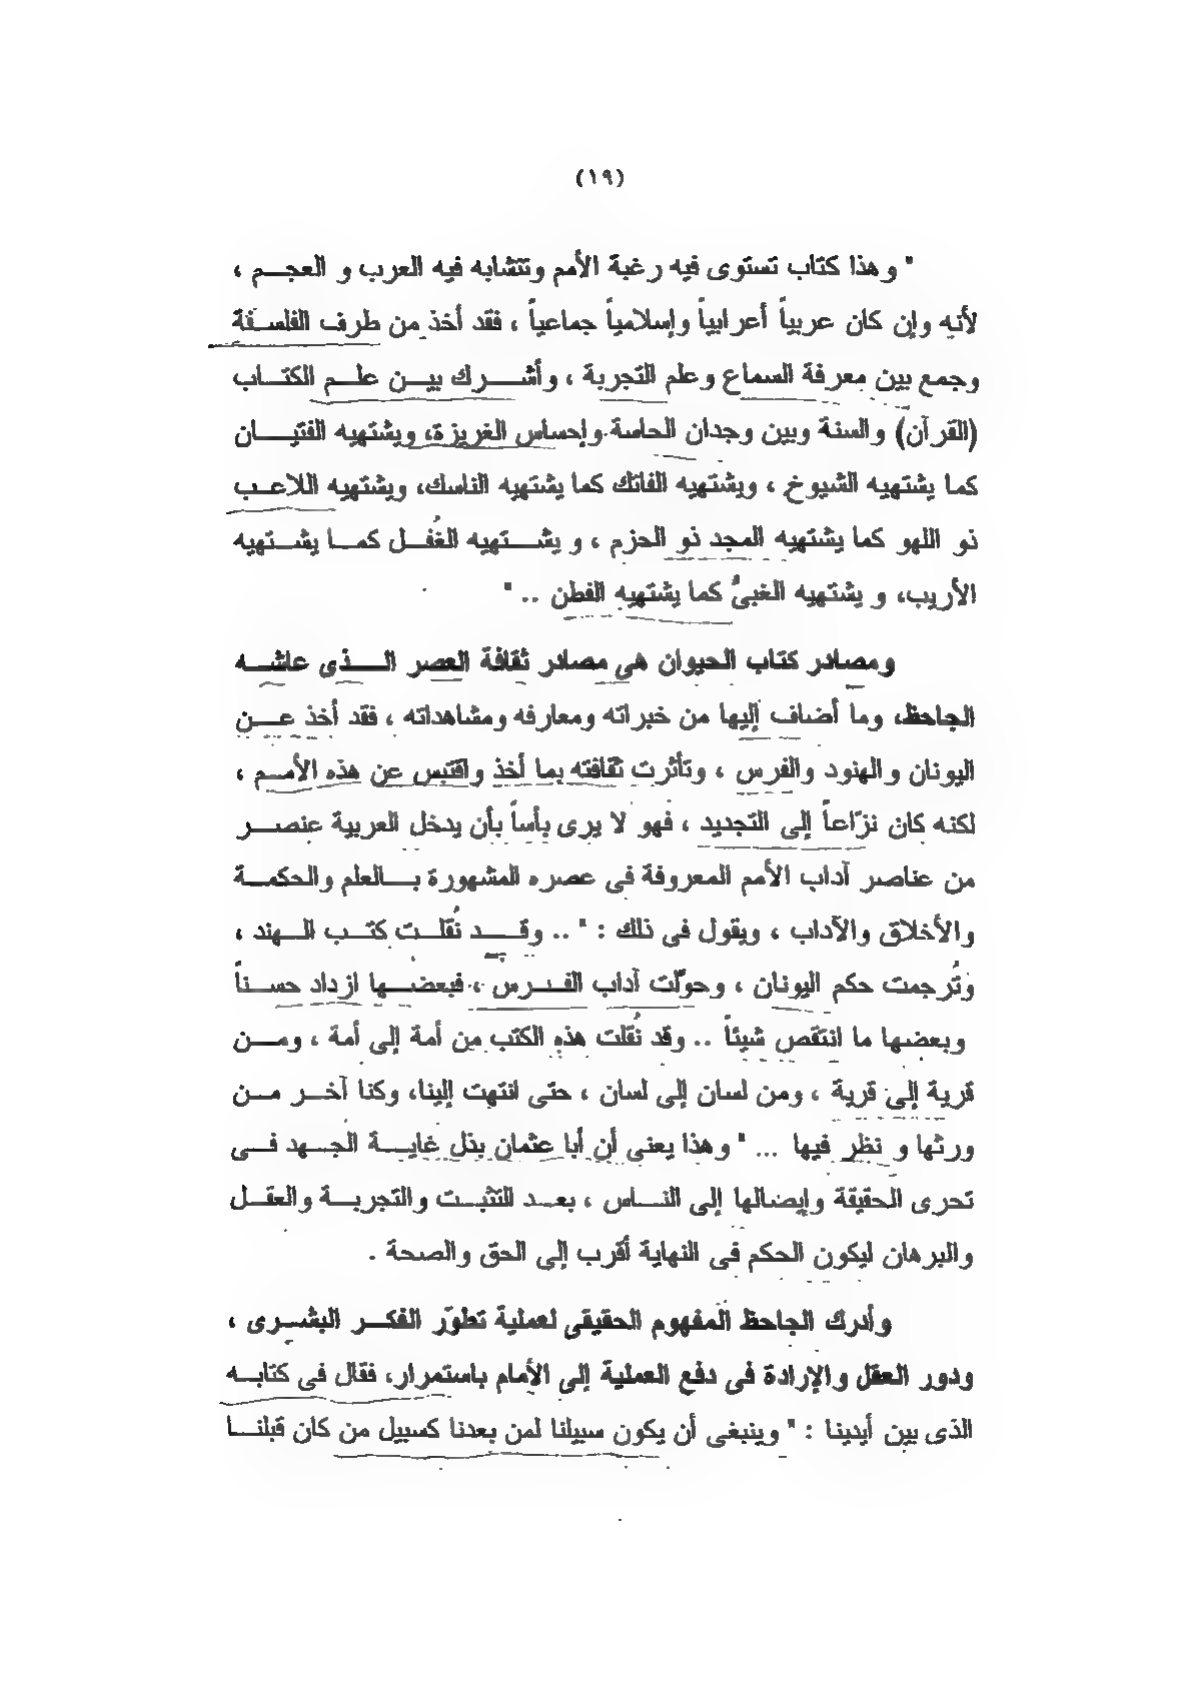 (١٩)
" وهذا كتاب تستوى فيه رغبة الأمم وتتشابه فيه العرب و العجم ،
لأنه وإن كان عربياً أعرابياً وإسلامياً جماعياً ، فقد أخذ من طرف الفلسفة
وجمع بين معرفة السماع وعلم التجربة ، وأشرك بين علم الكتاب
(القرآن) والسنة وبين وجدان الحاسة وإحساس الغريزة، ويشتهيه الفتيان
كما يشتهيه الشيوخ ، ويشتهيه الفاتك كما يشتهيه الناسك، ويشتهيه اللاعب
ذو اللهو كما يشتهيه المجد ذو الحزم ، و يشتهيه الغُفل كما يشتهيه
الأريب، و يشتهيه الغبىُّ كما يشتهيه الفطن .. "
ومصادر كتاب الحيوان هى مصادر ثقافة العصر الذى عاشه
الجاحظ، وما أضاف إليها من خبراته ومعارفه ومشاهداته ، فقد أخذ عن
اليونان والهنود والفرس ، وتأثرت ثقافته بما أخذ واقتبس عن هذه الأمم ،
لكنه كان نزّاعاً إلى التجديد ، فهو لا يرى بأساً بأن يدخل العربية عنصر
من عناصر آداب الأمم المعروفة فى عصره المشهورة بالعلم والحكمة
والأخلاق والآداب ، ويقول فى ذلك : " .. وقد نُقلت كتب الهند ،
وتُرجمت حكم اليونان ، وحوّلت آداب الفرس ، فبعضها ازداد حسناً
وبعضها ما انتقص شيئاً .. وقد نُقلت هذه الكتب من أمة إلى أمة ، ومن
قرية إلى قرية ، ومن لسان إلى لسان ، حتى انتهت إلينا، وكنا آخر من
ورثها و نظر فيها ... " وهذا يعنى أن أبا عثمان بذل غاية الجهد فى
تحرى الحقيقة وإيضالها إلى الناس ، بعد التثبت والتجربة والعقل
والبرهان ليكون الحكم فى النهاية أقرب إلى الحق والصحة .
وأدرك الجاحظ المفهوم الحقيقى لعملية تطوّر الفكر البشرى ،
ودور العقل والإرادة فى دفع العملية إلى الأمام باستمرار، فقال فى كتابه
الذى بين أيدينا : " وينبغى أن يكون سبيلنا لمن بعدنا كسبيل من كان قبلنا